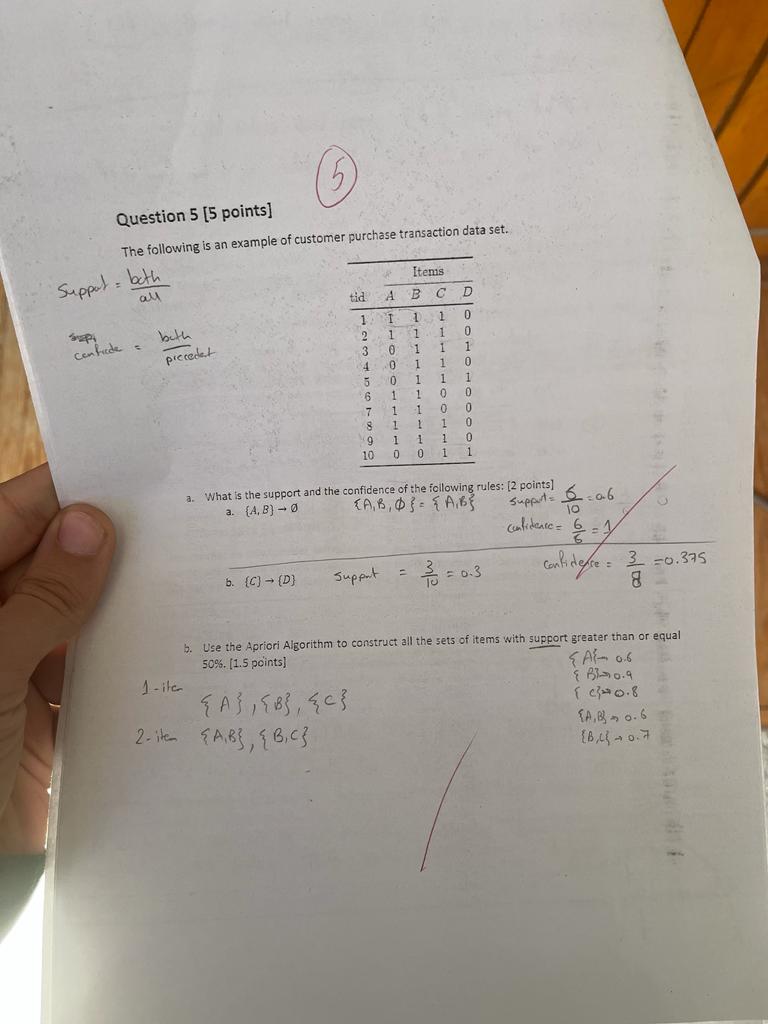 5
Question 5 [5 points]
The following is an example of customer purchase transaction data set.
Support = both / all
confidence = both / precedet
Items
tid A B C D
1 1 1 1 0
2 1 1 1 0
3 0 1 1 1
4 0 1 1 0
5 0 1 1 1
6 1 1 0 0
7 1 1 0 0
8 1 1 1 0
9 1 1 1 0
10 0 0 1 1
a. What is the support and the confidence of the following rules: [2 points]
a. {A, B} → Ø {A,B,Ø} = {A,B} support = 6/10 = 0.6
confidence = 6/6 = 1
b. {C} → {D} Support = 3/10 = 0.3 confidence = 3/8 = 0.375
b. Use the Apriori Algorithm to construct all the sets of items with support greater than or equal
50%. [1.5 points]
{A} → 0.6
{B} → 0.9
{C} → 0.8
{A,B} → 0.6
{B,C} → 0.7
1-item {A}, {B}, {C}
2-item {A,B}, {B,C}